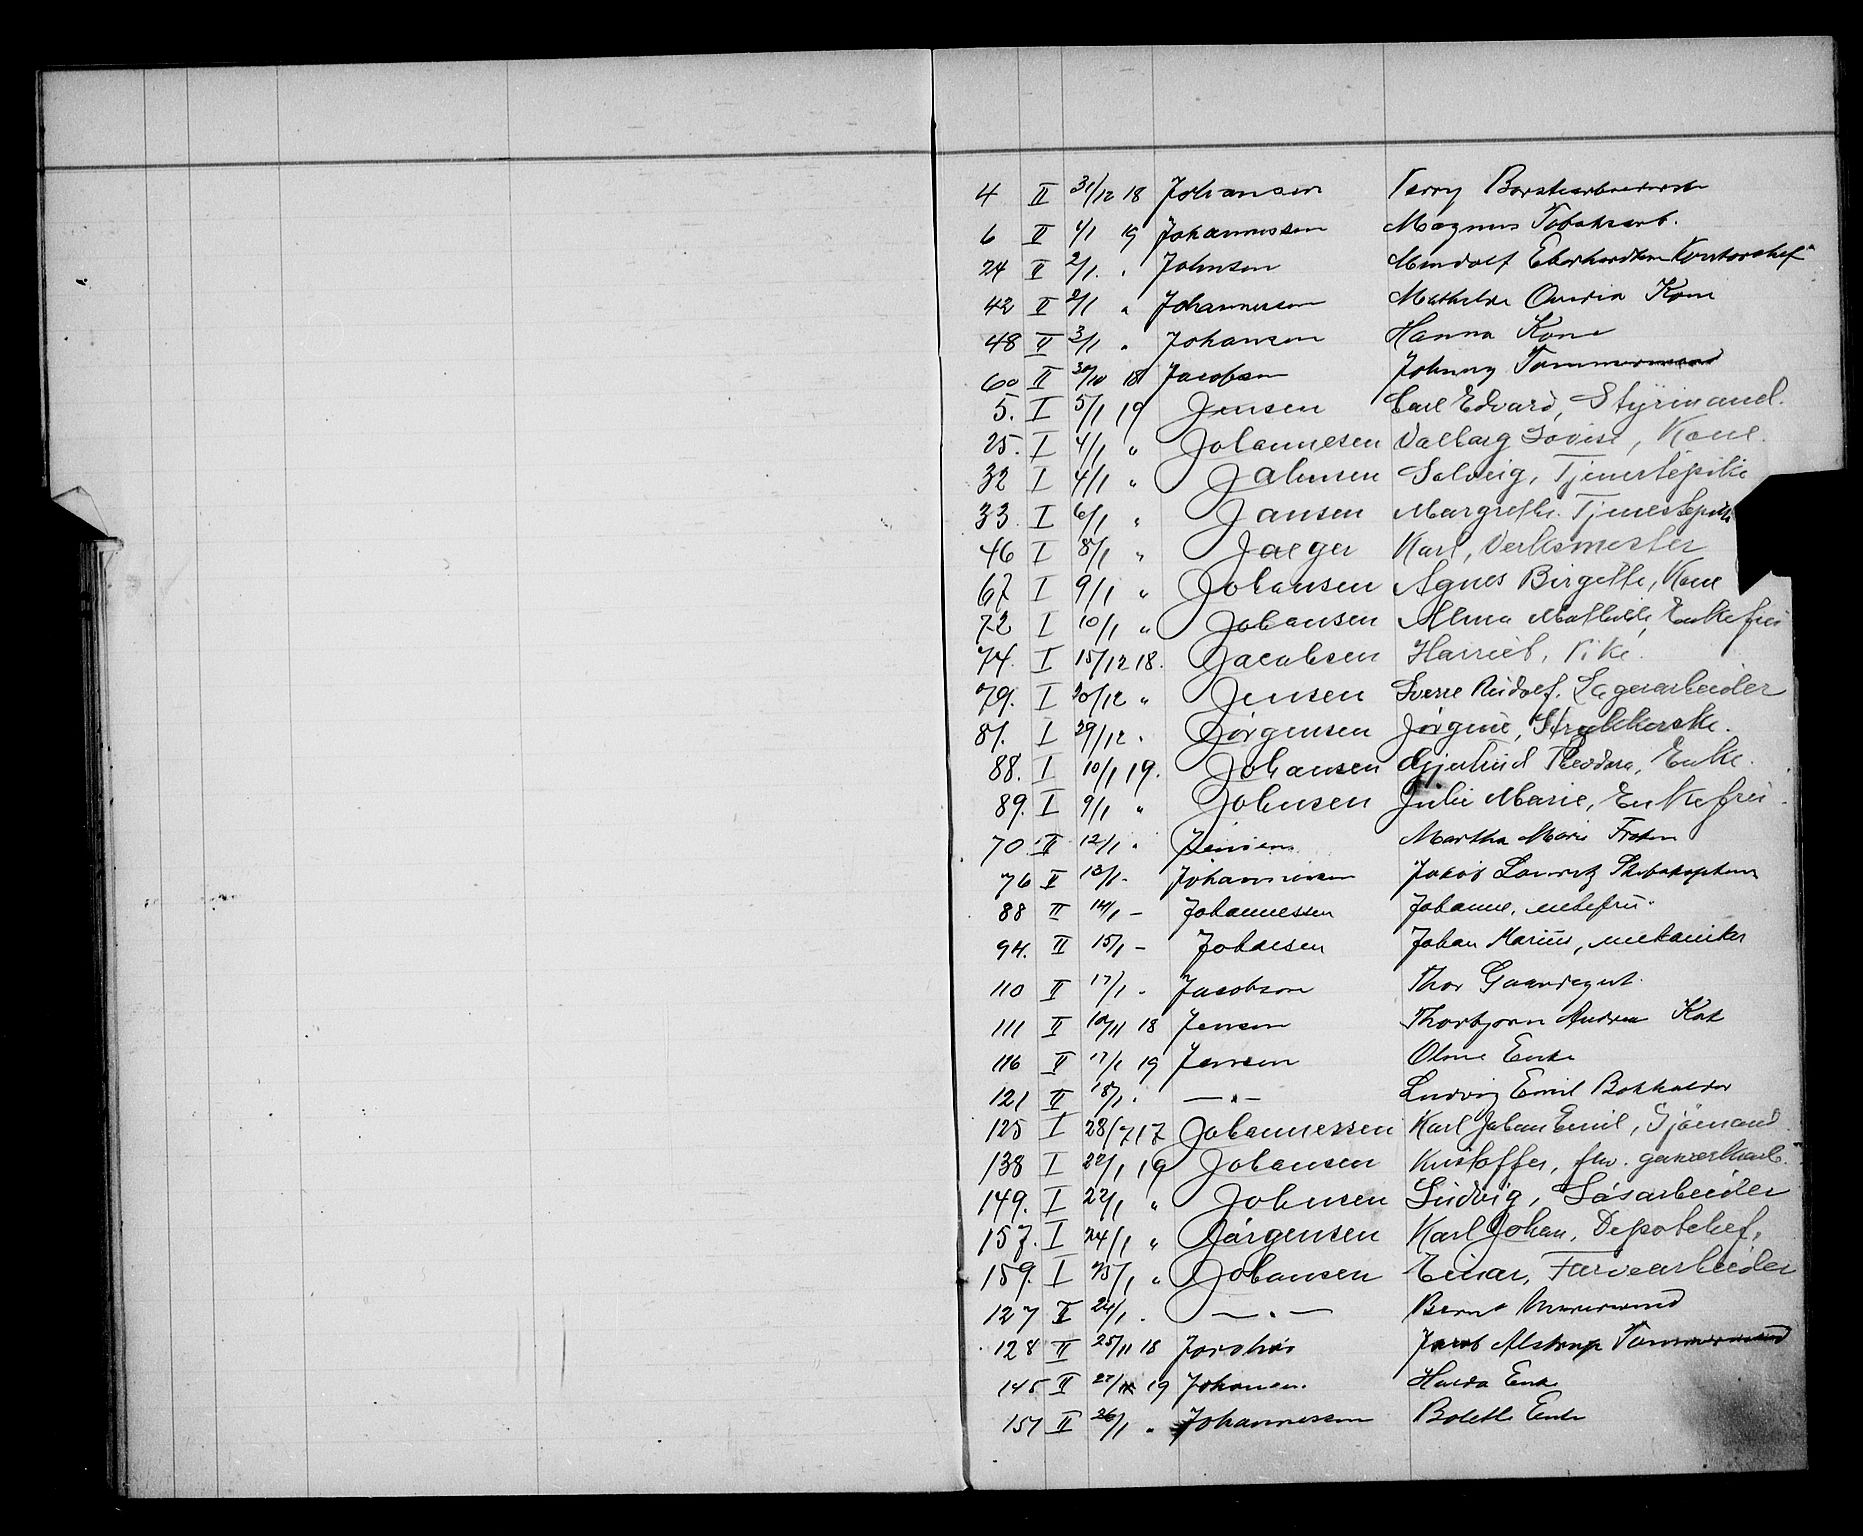 4 II 31/12 18 Johansen
6 II 1/1 19 Johannessen Magnus Tobaksarb.
24 II 2/1 " Johnsen Eberhardsen Kontorchef
42 II 2/1 " Johannessen Mathilde Kone
48 II 3/1 " Johansen Hanna Kone
60 II 30/10 18 Jacobsen Johnny Tømmermand
5. I 5/1 19 Jensen Carl Edvard, Styrmand.
25. I 4/1 " Johannesen Valborg Lovise, Kone.
32 I 4/1 " Johnsen Solveig, Tjenestepike
33. I 6/1 " Jansen Margrethe. Tjenestepike
46 I 8/1 " Jaeger Karl, Verksmester
67 I 9/1 " Johansen Agnes Birgitte, Kone
72 I 10/1 " Johansen Alma Mathilde, Enkefru
74. I 15/12 18. Jacobsen Harriet, Pike.
79. I 30/12 " Jensen Sverre Rudolf. Lagerarbeider
81. I 29/12 " Jørgensen Jørgine, Strykkerske.
88. I 10/1 19. Johansen Gjertrud Theodora, Enke.
89. I 9/1 " Johnsen Julie Marie, Enkefru.
70 II 12/1 " Jensen Martha Marie Frøken
76 II 13/1 - Johannessen Jakob Lauritz Skibskaptein
88 II 14/1 - Johannessen Johanne, enkefru.
94. II 15/1 - Johansen Johan Marius, mekaniker
110 II 17/1 - Jacobsen Thor Gaardsgut.
111 II 10/11 18 Jensen Thorbjørn Andreas Kok
116 II 17/1 19 Jensen Enke
121 II 18/1 " — " — Ludvig Emil Bokholder
125 I 28/7 17 Johannessen Karl Johan Emil, Sjømand.
138 I 22/1 19 Johansen Kristoffer, fhv.
149. I 22/1 " Johnsen Ludvig, Løsarbeider
157. I 24/1 " Jørgensen Karl Johan, Depotchef,
159. I 25/1 " Johansen Einar, Farvearbeider
127 II 24/1 . — " — Bernt Murermand
128 II 25/11 18 Jacob Alstrup Tømmermand
145 II 27/1 19 Johansen. Hulda Enke
157 II 26/1 " Johannessen Bolette Enke